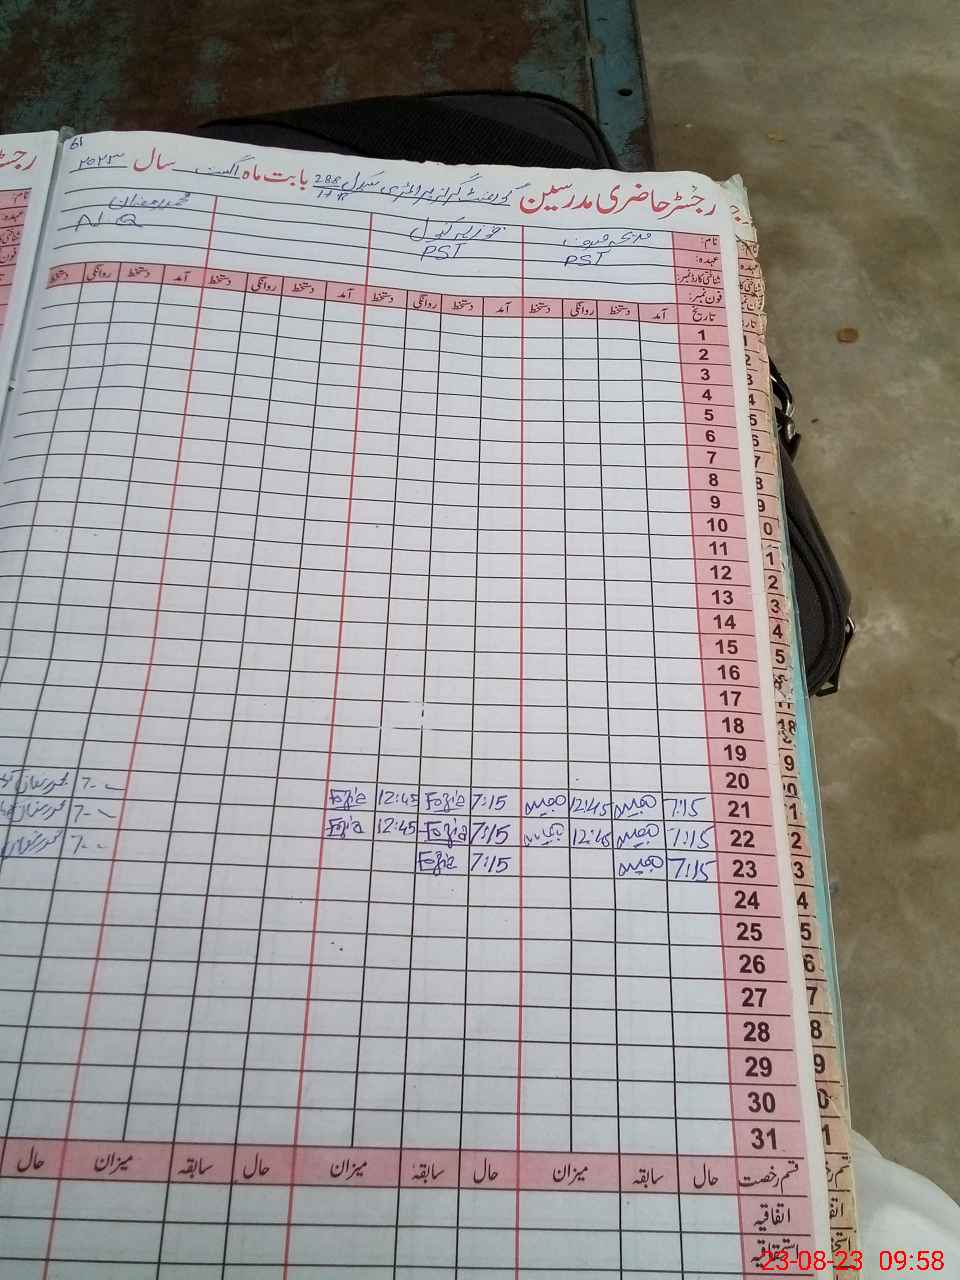 61
رجسٹر حاضری مدرسین گورنمنٹ گرلز پرائمری سکول 288 HR بابت ماہ اگست سال ۲۰۲۳
نام:
عہدہ: PST PST N-Q
شناختی کارڈ نمبر:
فون نمبر:
تاریخ آمد دستخط روانگی دستخط آمد دستخط روانگی دستخط آمد دستخط روانگی دستخط آمد دستخط روانگی دستخط
1
2
3
4
5
6
7
8
9
10
11
12
13
14
15
16
17
18
19
20
21 7:15 12:45 7:15 Fozia 12:45 Fozia 7--
22 7:15 12:45 7:15 Fozia 12:45 Fozia 7--
23 7:15 7:15 Fozia 7--
24
25
26
27
28
29
30
31
قسم رخصت حال سابقہ میزان حال سابقہ میزان حال سابقہ میزان حال
اتفاقیہ
استحقاقیہ
23-08-23 09:58